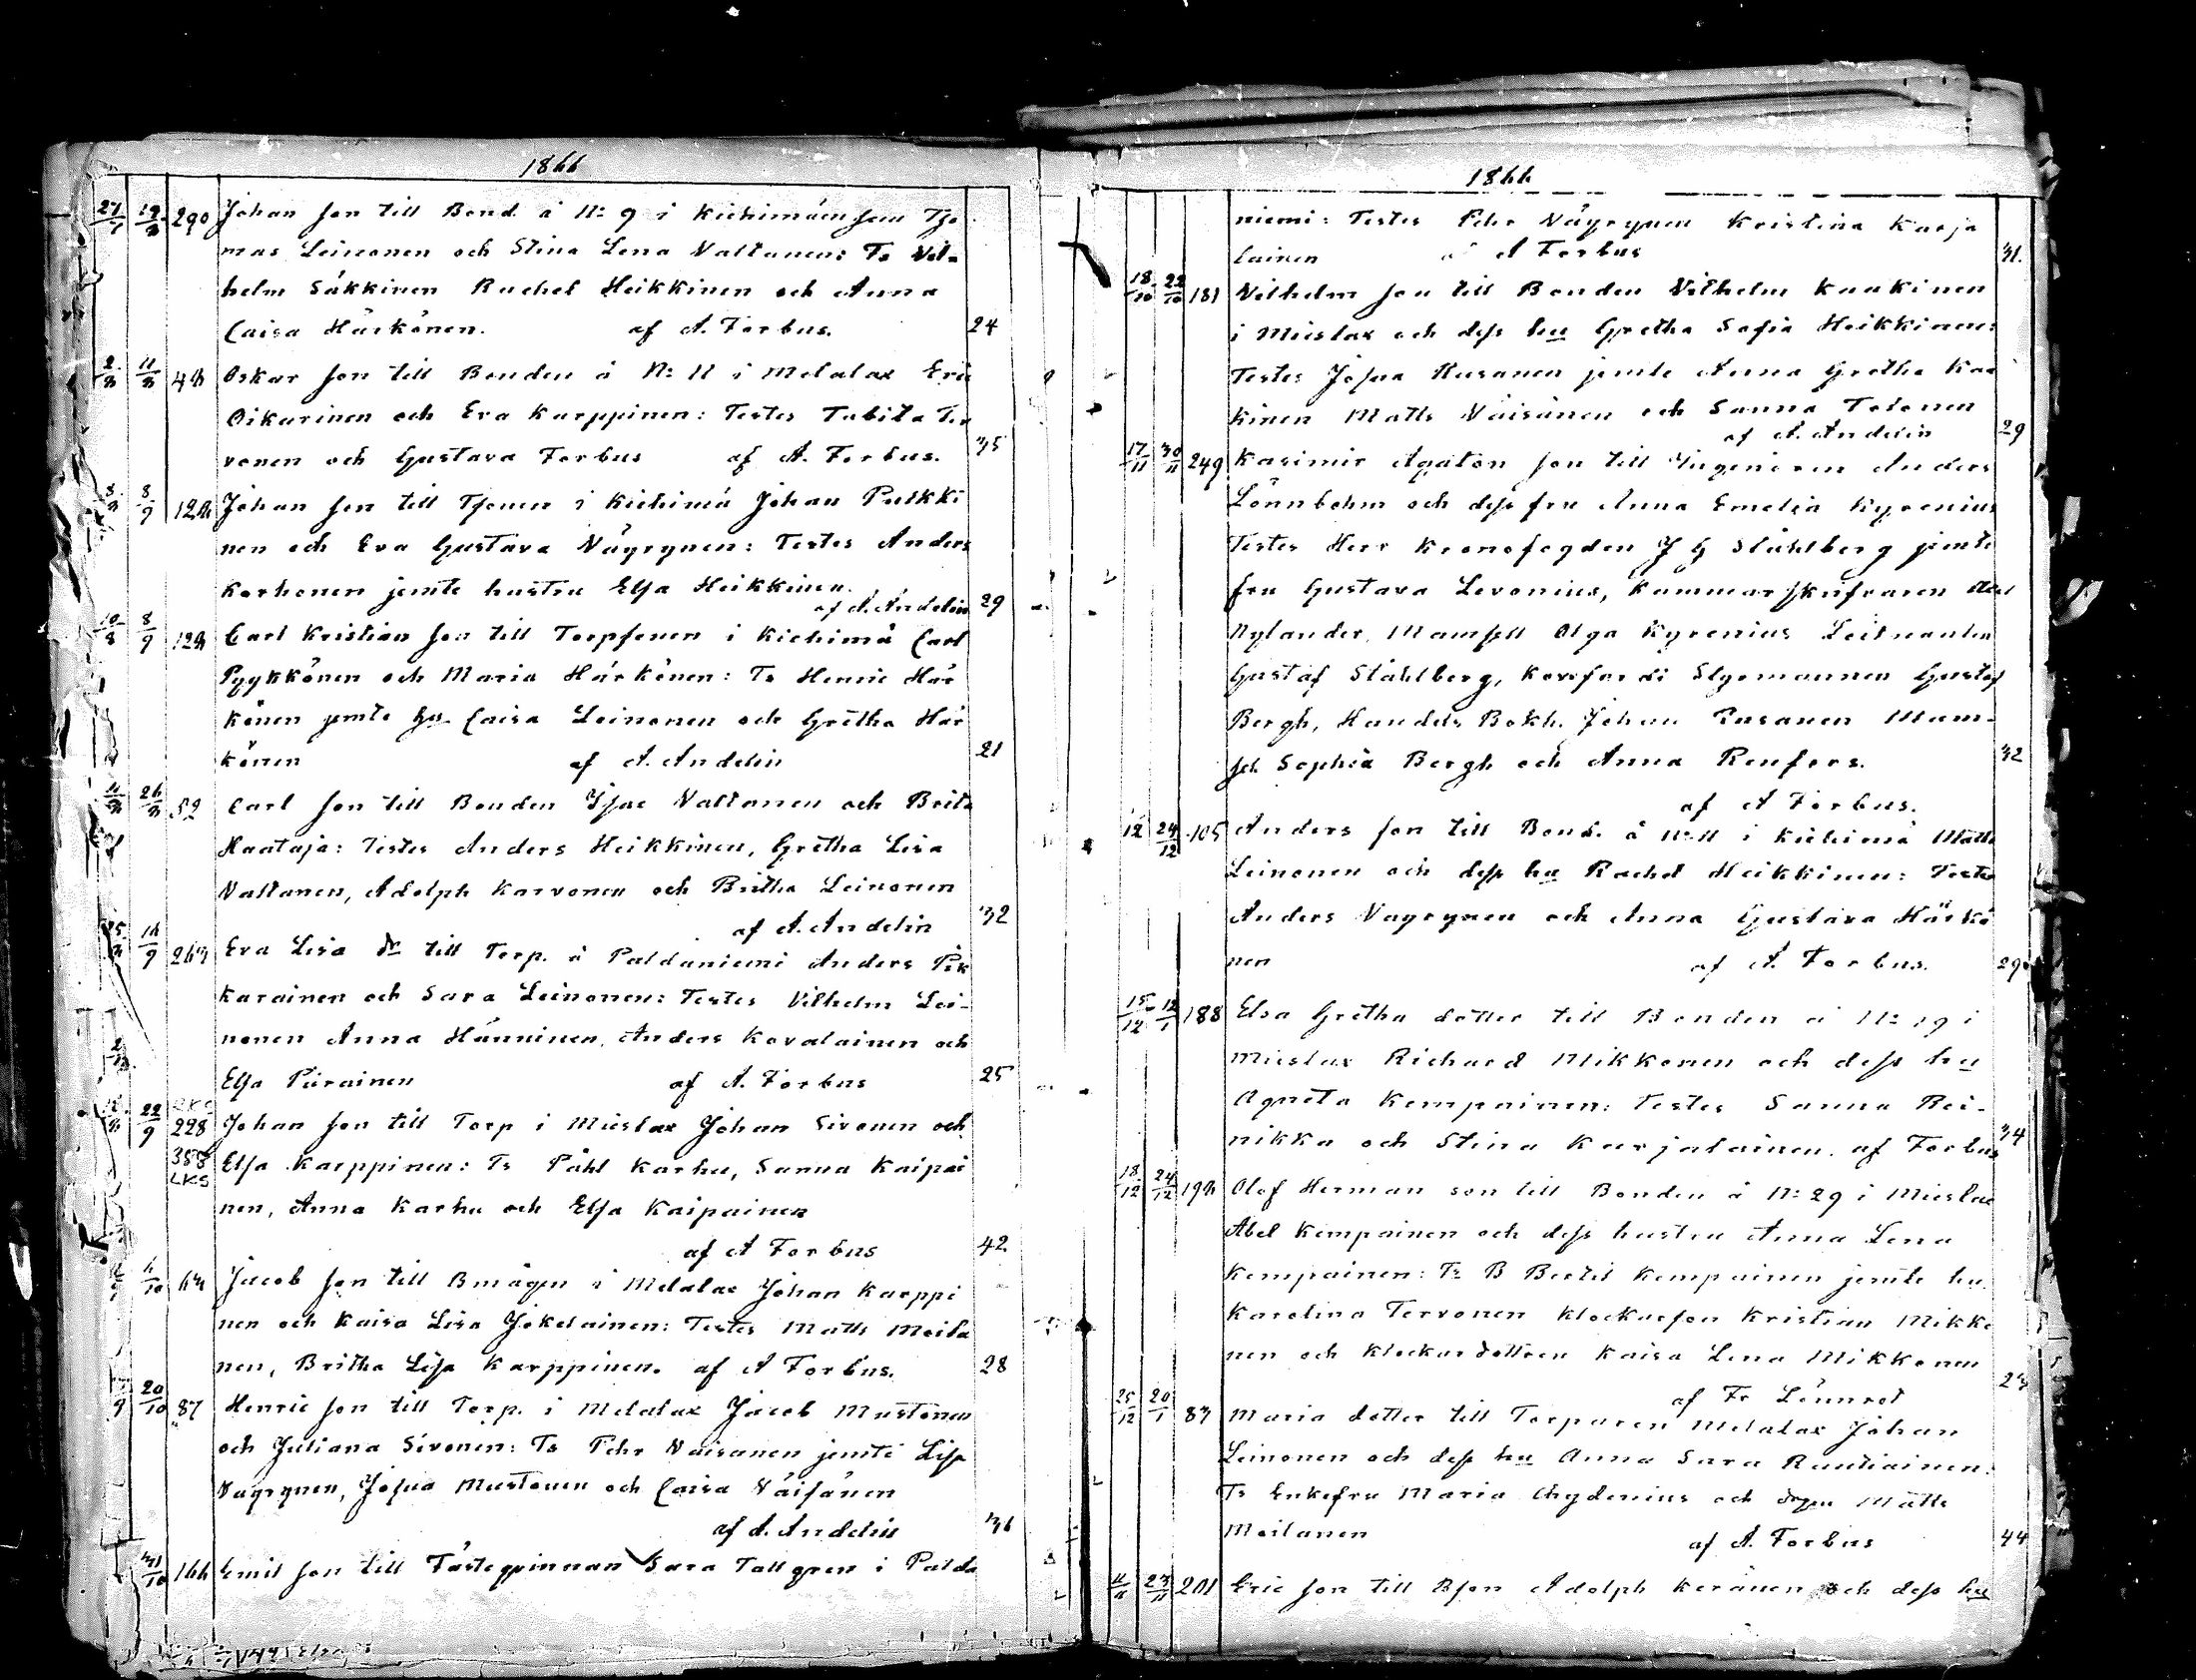 1866
27/7 19/8 290 Johan son till Bond. å N: 9 i Kiehimäensuu Tho
mas Leinonen och Stina Lena Valtanen: Ts Vil-
helm Säkkinen Rachel Heikkinen och Anna
Caisa Härkönen. af A. Forbus. 24
2/8 11/8 48 Oskar son till Bonden å N: 11 i Melalax Eric
Oikarinen och Eva Karppinen: Testes Tabita Ter
vonen och Gustava Forbus af A. Forbus. 35
8/9 128 Johan son till Tjenen i Kiehimä Johan Pulkki
nen och Eva Gustava Näyrynen: Testes Anders
Korhonen jemte hustru Elsa Heikkinen.
af A. Andelin 29
10/8 8/9 128 Carl Kristian son till Torpsonen i Kiehimä Carl
Pyykkönen och Maria Härkönen: Ts Henric Här
könen jemte hu Caisa Leinonen och Gretha Här
könen af A. Andelin 21
11/8 26/8 52 Carl son till Bonden Isac Valtanen och Brita
Haataja: Testes Anders Heikkinen, Gretha Lisa
Valtanen, Adolph Karvonen och Britha Leinonen
af A. Andelin 32
25/8 16/9 263 Eva Lisa dr till Torp. å Paldaniemi Anders Pik
karainen och Sara Leinonen: Testes Vilhelm Lei-
nonen Anna Hänninen, Anders Kovalainen och
Elsa Piirainen af A. Forbus 25
22/9 228 Johan son till Torp i Mieslax Johan Sivonen och
358 LKS Elsa Karppinen: Ts Påhl Karhu, Sanna Kaipai
nen, Anna Karhu och Elsa Kaipainen
af A Forbus 42
6/10 63 Jacob son till Bmågen i Melalax Johan Karppi
nen och Kaisa Lisa Jokelainen: Testes Matts Meila
nen, Britha Lisa Karppinen. af A Forbus. 28
20/10 87 Henric son till Torp. i Melalax Jacob Mustonen
och Juliana Sivonen: Ts Pehr Väisänen jemte Lisa
Näyrynen, Josua Mustonen och Caisa Väisänen
af A. Andelin 36
31/10 166 Emil son till Tästeqvinnan Sara Tallgren i Palda
1866
niemi: Testes Pehr Näyrynen Kristina Karja
lainen A Forbus 31.
18/10 22/10 181 Vilhelm son till Bonden Vilhelm Kaakinen
i Mieslax och dess hu Gretha Sofia Heikkinen:
Testes Josua Rusanen jemte Anna Gretha Kaa
kinen Matts Väisänen och Sanna Tolonen
af A. Andelin 29
17/11 30/11 249 Kasimir Agaton son till Ingeniören Anders
Lönnbohm och dess fru Anna Emelia Kyrenius
Testes Herr Kronofogden J G Ståhlberg jemte
fru Gustava Levonius, Kammarskrifvaren
Nylander, Mamsell Olga Kyrenius Leitnanten
Gustaf Ståhlberg, Koopfardi Styrmannen Gustaf
Bergh, Handels Bokh. Johan Rusanen Mam-
sel Sophia Bergh och Anna Renfors. 32
af A Forbus.
12 24/12 105 Anders son till Bond. å N: 11 i Kiehimä Matts
Leinonen och dess hu Rachel Heikkinen: Testes
Anders Nayrynen och Anna Gustava Härkö
nen af A. Forbus. 29
15/12 12/1 188 Elsa Gretha dotter till Bonden å N: 19 i
Mieslax Richard Mikkonen och dess hu
Agneta Kempainen: Testes Sanna Rei-
nikka och Stina Karjalainen. af Forbus 34
18/12 24/12 198 Olof Herman son till Bonden å N: 29 i Mieslax
Abel Kempainen och dess hustru Anna Lena
Kempainen: Ts B Bertil Kempainen jemte hu.
Karolina Tervonen Klockarson Kristian Mikko
nen och Klockardottren Kaisa Lena Mikkonen
af Fr Lönnrot 23
25/12 20/1 83 Maria dotter till Torparen Melalax Johan
Leinonen och dess hu Anna Sara Rautiainen:
Ts Enkefru Maria Chydenius och Matts
Meilanen af A. Forbus 44
11/11 23/11 201 Eric son till Bson Adolph Keränen och dess hu